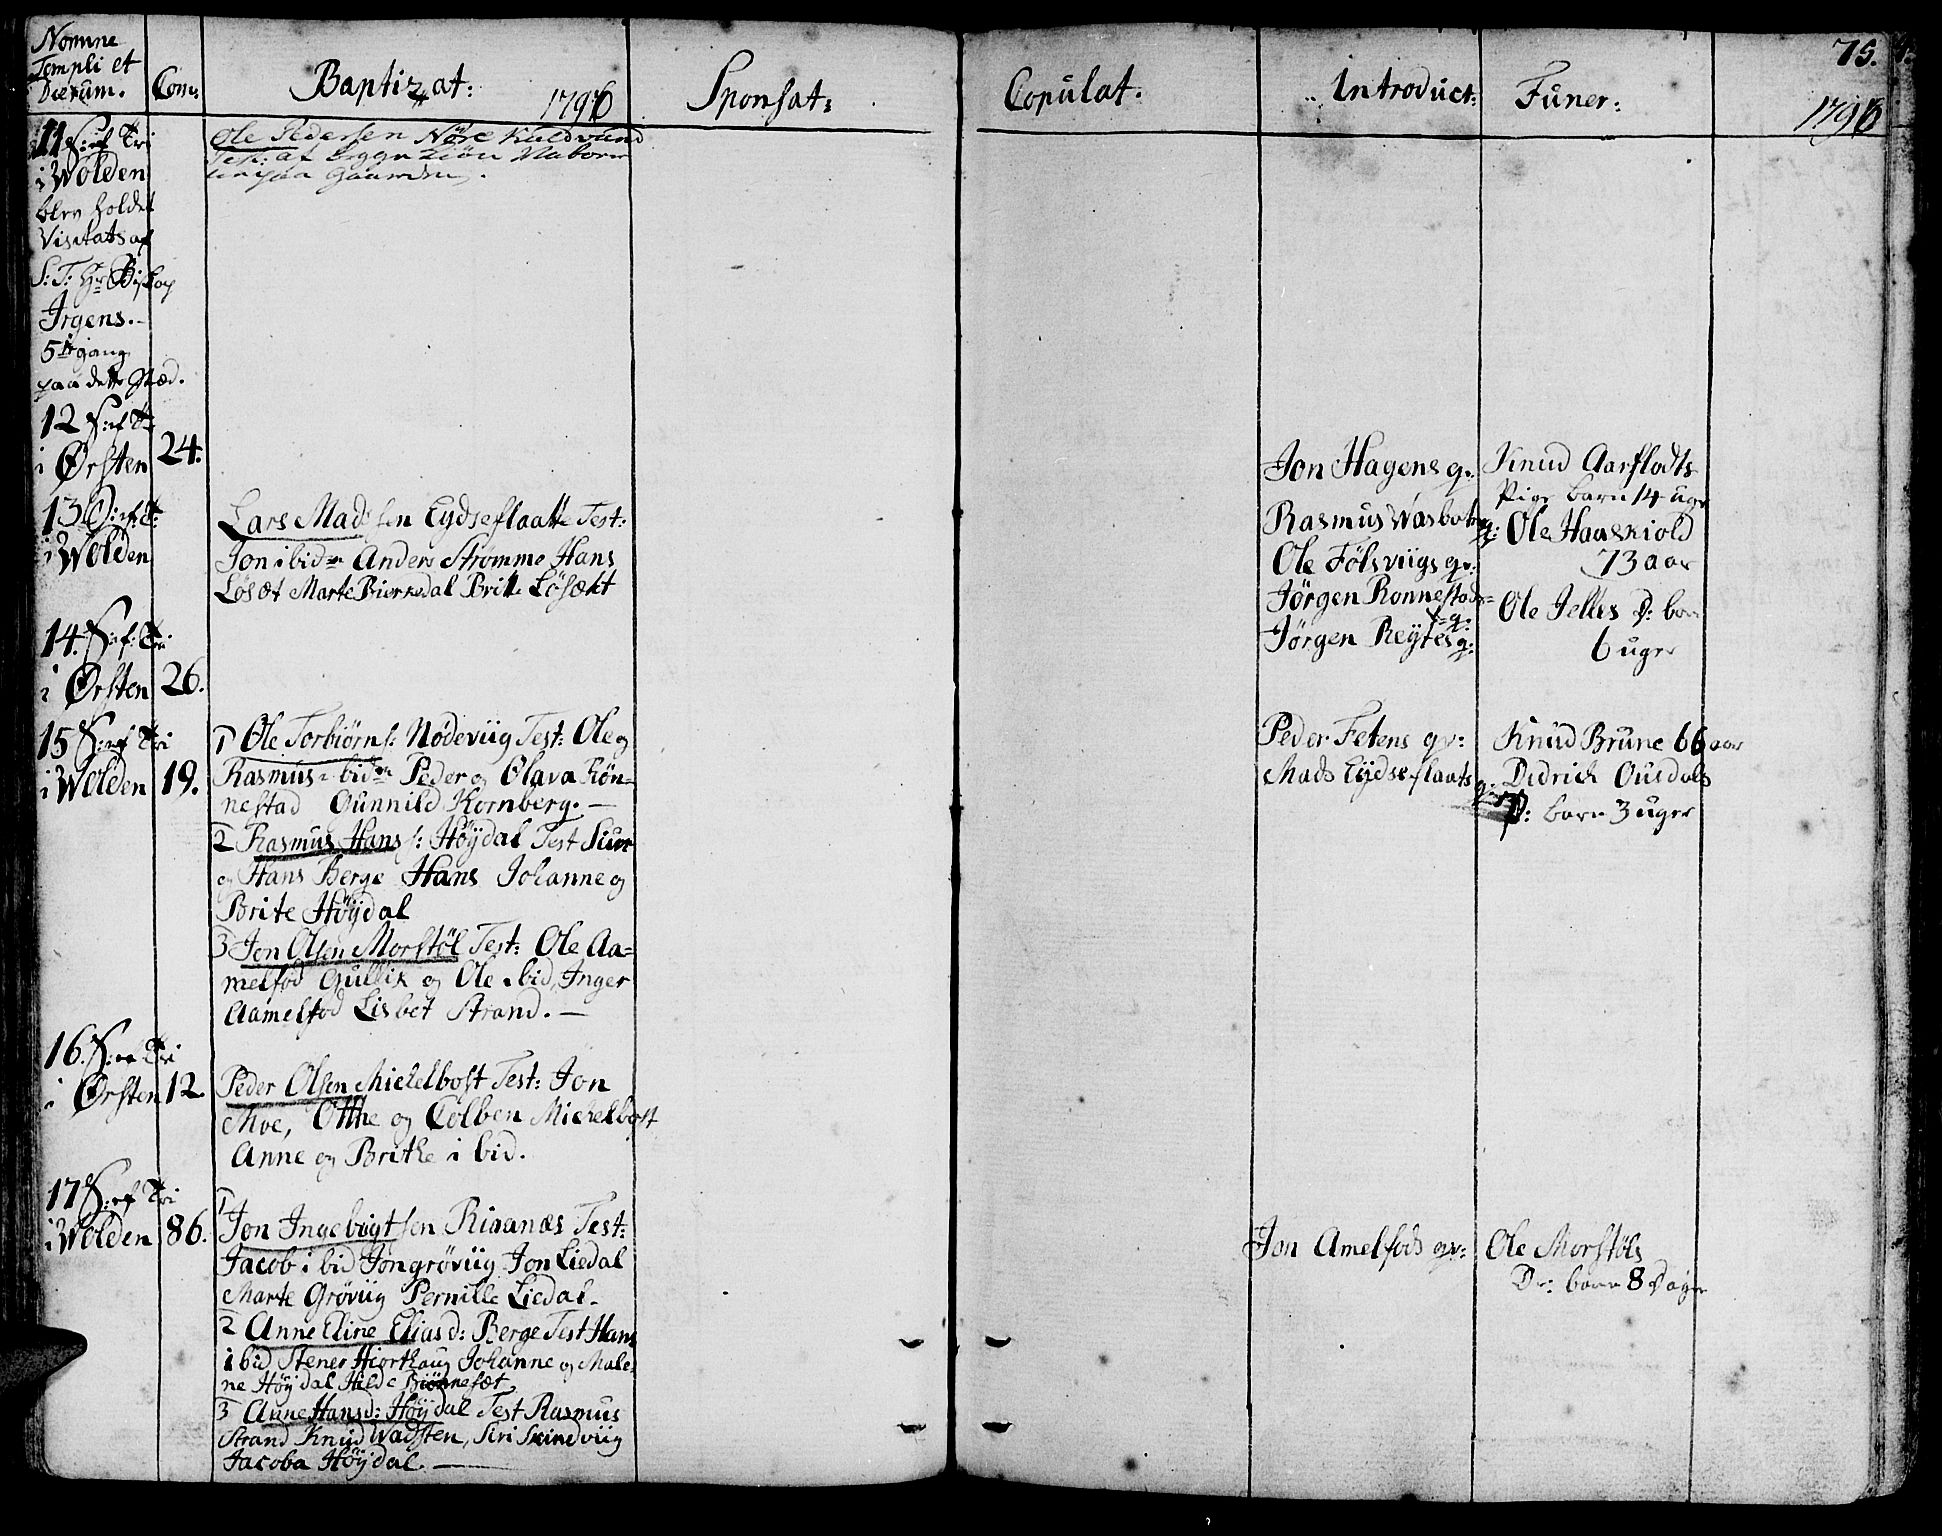 Nomine
Templi et
Dierum.
Com:
Baptizat:
1796
Sponsat:
Copulat:
Introduct:
Funer:
75.
1796
11 S: ef Tri
i Wolden
blev holdet
Visitats af
S: T: Hr Biskop
Irgens.
5te gang
paa dette Stæd.
Ole Pedersen Nøre Kaldvand
Test: af Naboer
paa Gaarden.
12 S: ef Tr
i Ørsten
24.
Jon Hagens q:
Knud Aarflodts
Pige barn 14 uger
13 S: ef: T:
i Wolden
Lars Madssen Eydseflaatte Test:
Jon ibidm Anders Strømme Hans
Løsæt Marte Bierkedal Britte Løsækt
Rasmus Wasbotn q:
Ole Fölsviigs q:
Jörgen Ronnestads
q:
Jörgen Reytes q:
Ole Haaskiold
73 aar
Ole Jelles D: barn
6 uger
14. S: ef: Tri
i Ørsten
26.
15 S: ef Tri
i Wolden
19.
1) Ole Torbiörns: Nödeviig Test: Ole og
Rasmus ibidm Peder og Olava Rön-
nestad Gunnild Kornberg. —
2 Rasmus Hans s: Höydal Test Siur
og Hans Berge Hans Johanne og
Brite Höydal
3 Jon Olsen Morstöl Test: Ole Aa-
melfod Gullik og Ole ibid, Inger
Aamelfod Lisbet Strand. —
Peder Fetens qv:
Mads Eydseflaats q:
Knud Brune 66 aar
Didrick Ousdals
P: barn 3 uger
16. S: ef Tri
i Ørsten
12.
Peder Olsen Mickelbost Test: Jon
Moe, Otthe og Colben Mickelbost
Anne og Brithe i bid.
17 S: ef Tri
i Wolden
86.
1)
Jon Ingebrigtsen Riaanæs Test:
Jacob i bid Jon Grövиig Jon Liedal
Marte Gröviig Pernille Liedal.
2 Anne Eline Elias d: Berge Test Hans
ibid Stener Hiorthaug Johanne og Male-
ne Höydal Hilde Biönnesæt
3 Anne Hansd: Höydal Test Rasmus
Strand Knud Wadsten, Siri Skindviig
Jacoba Höydal. —
Jon Amelfods qv:
Ole Morstöls
Dr: barn 8 Dage